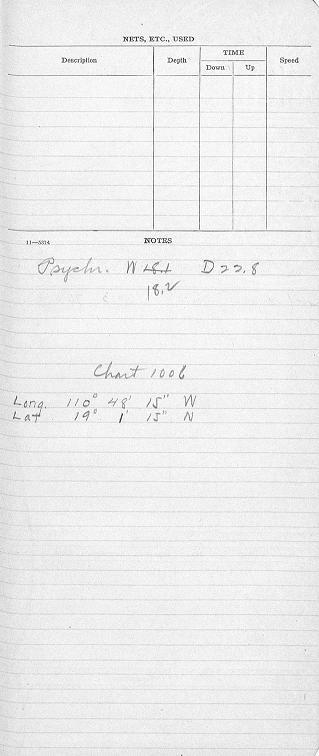 NETS, ETC., USED
Description Depth TIME Speed
Down Up
11—5314 NOTES
Psychr. W 18.1 D 22.8
18.2
Chart 1006
Long. 110° 48' 15" W
Lat 19° 1' 15" N